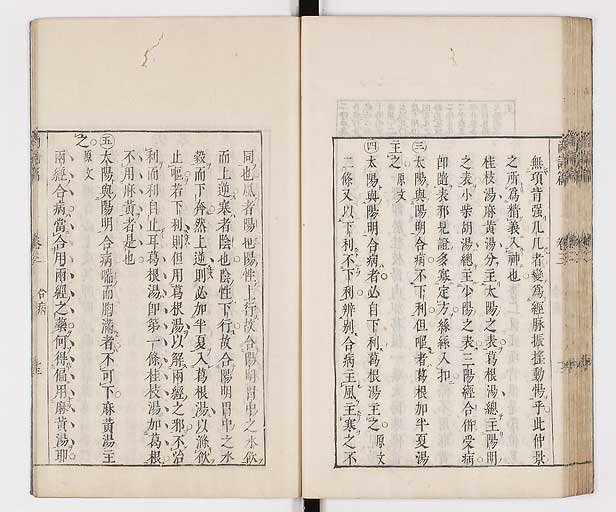 無項背强几几者變爲經脉振搖動惕乎此仲景
之所爲精義入神也
桂枝湯麻黃湯分主太陽之表葛根湯總主陽明
之表小柴胡湯總主少陽之表三陽經合併受病
卽隨表邪見證多寡定方絲絲入扣
㊂太陽與陽明合病不下利但嘔者葛根加半夏湯
主之 原文
㊃太陽與陽明合病者必自下利葛根湯主之 原文
二條又以下利不下利辨別合病主風主寒之不
同也風者陽也陽性上行故合陽明胃中之水飮
而上逆寒者陰也陰性下行故合陽明胃中之水
穀而下奔然上逆則必加半夏入葛根湯以滌飮
止嘔若下利則但用葛根湯以解兩經之邪不治
利而利自止耳葛根湯卽第一條桂枝湯加葛根
不用麻黃者是也
㊄太陽與陽明合病喘而胸滿者不可下麻黃湯主
之 原文
兩經合病當合用兩經之藥何得偏用麻黃湯耶
合病